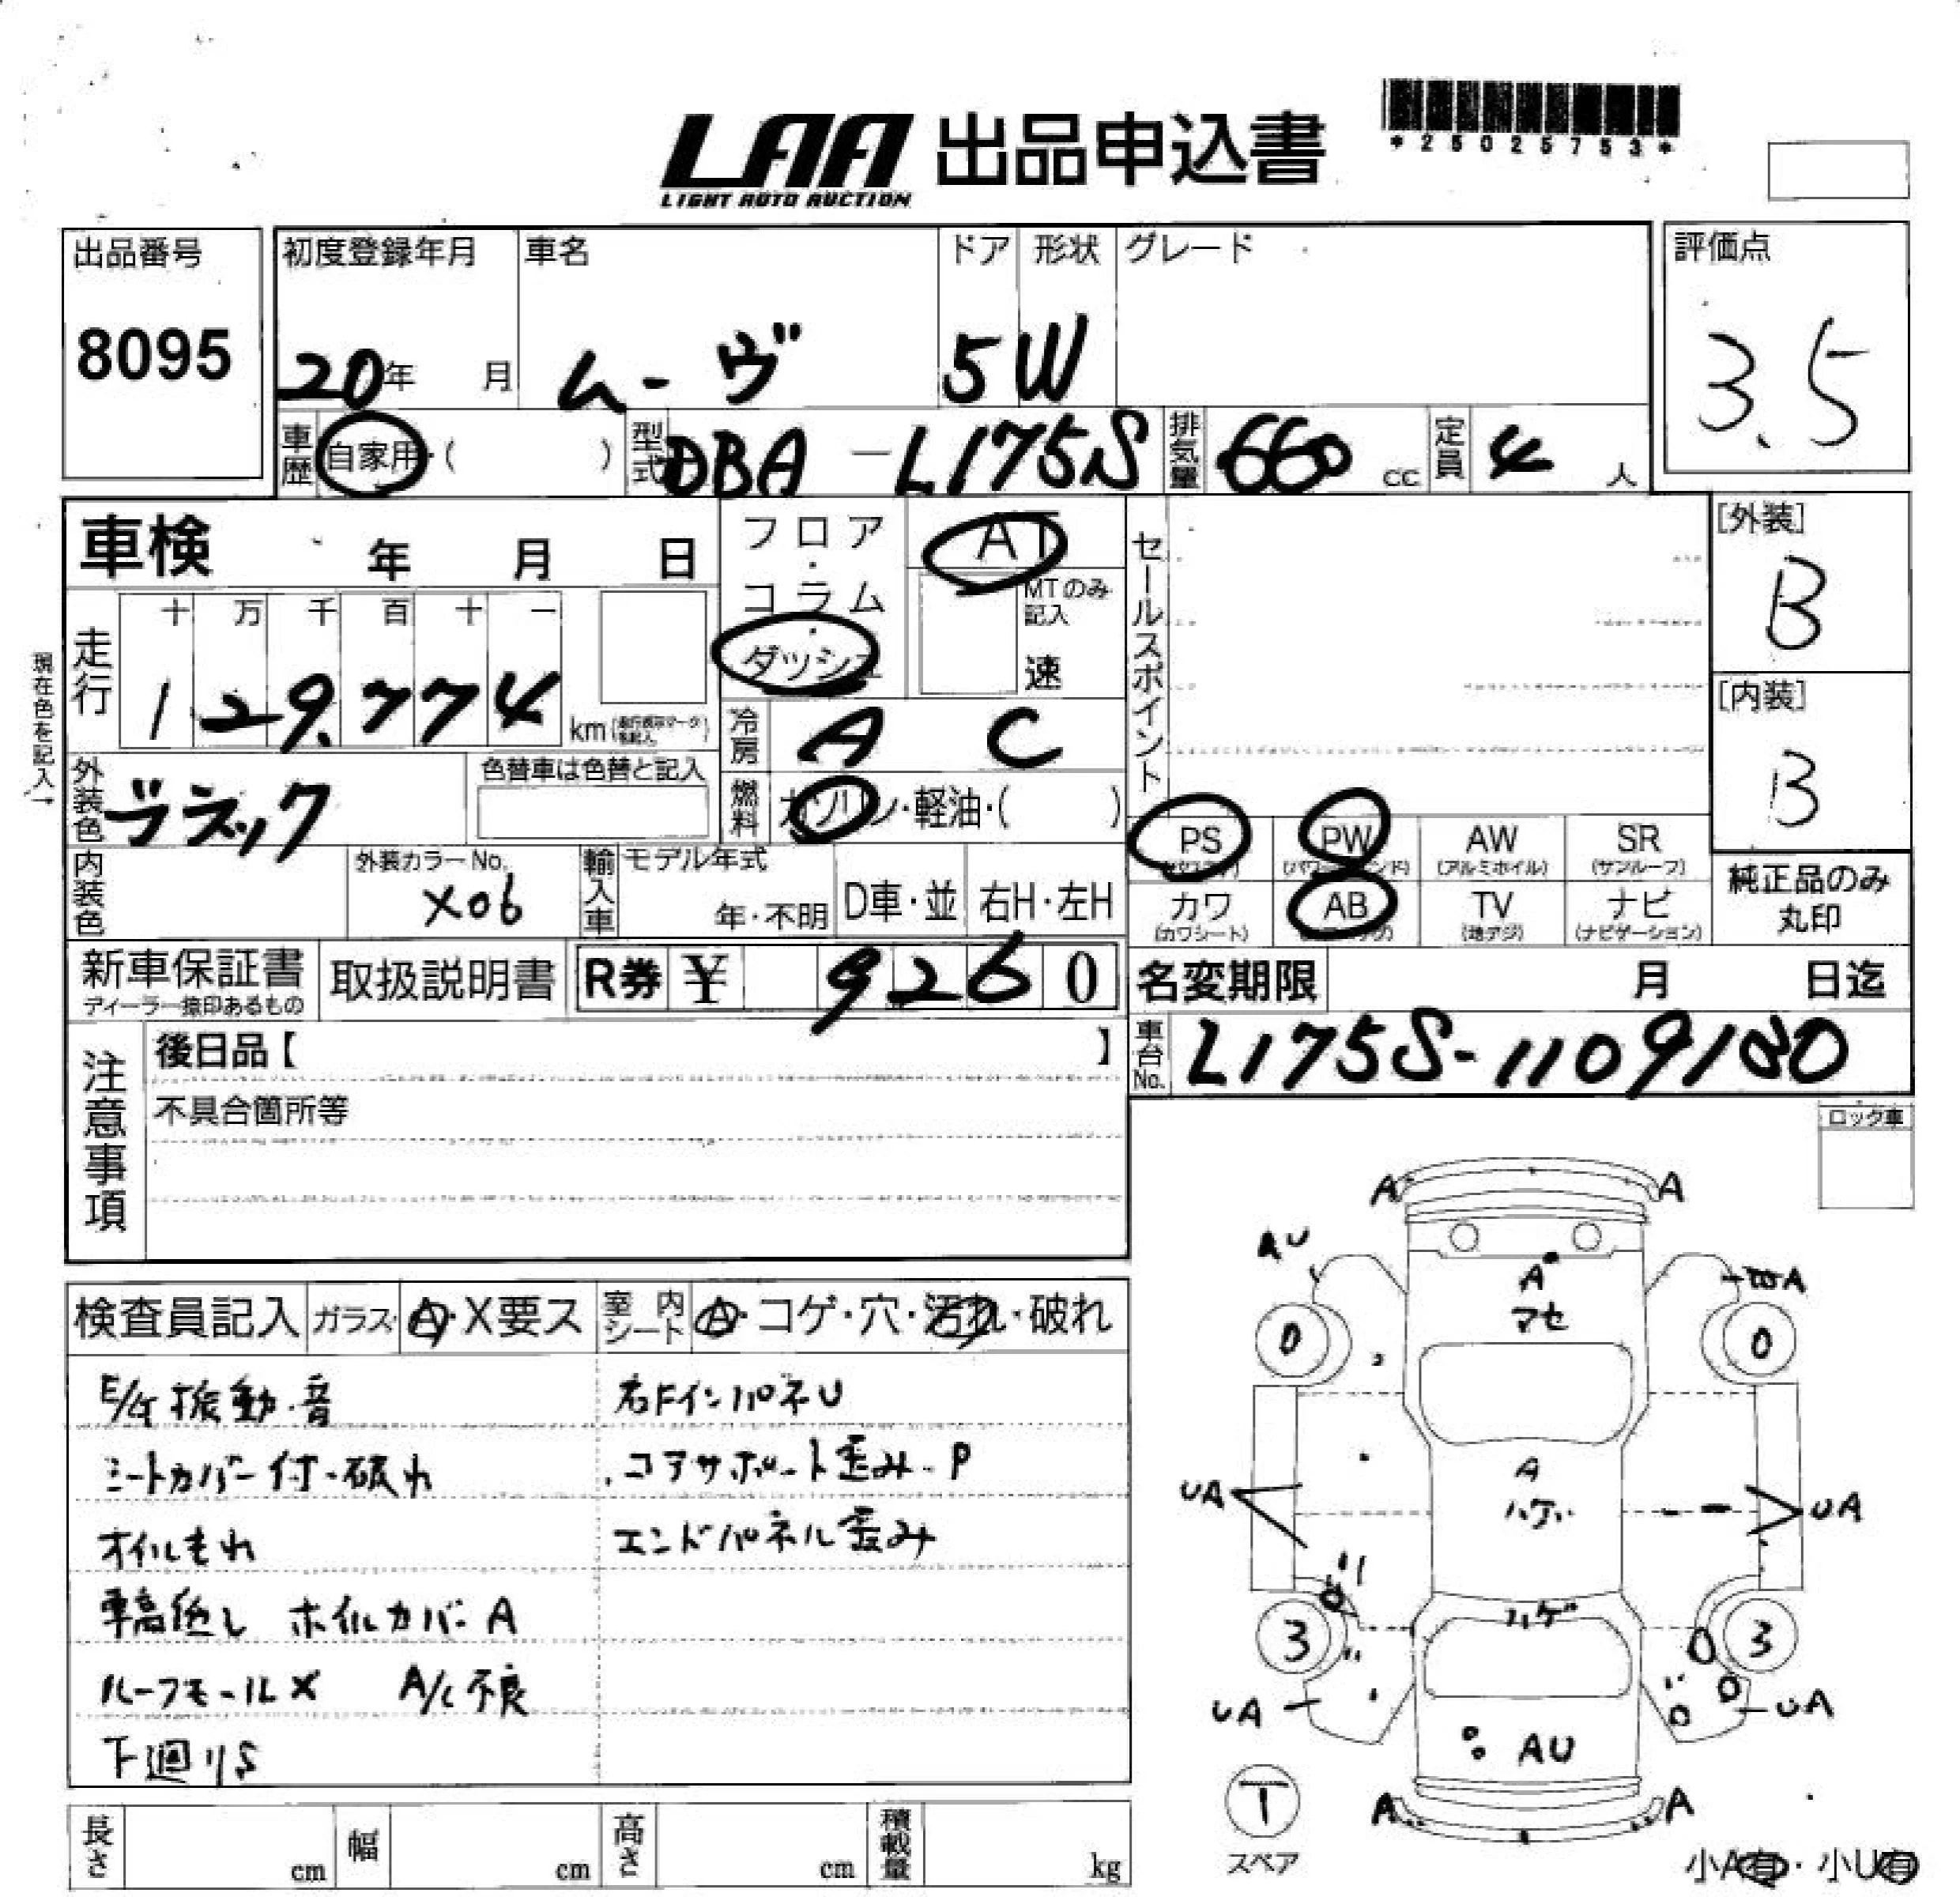 LAA 出品申込書
LIGHT AUTO AUCTION
*25025753*
出品番号
8095
初度登録年月 車名 ドア 形状 グレード
20年 月 ムーヴ 5 W
評価点
3.5
車歴 自家用・( ) 型式 DBA-L175S 排気量 660 cc 定員 4 人
車検 年 月 日
フロア・コラム・ダッシュ
AT
MTのみ記入
速
セールスポイント
[外装]
B
[内装]
B
現在色を記入→
走行 十 万 千 百 十 一
129,774 km
冷房 A C
燃料 ガソリン・軽油・( )
外装色 ブラック
色替車は色替と記入
内装色
外装カラーNo.
X06
輸入車 モデル年式
年・不明 D車・並 右H・左H
PS PW AW SR
(パワーウインド) (アルミホイル) (サンルーフ)
カワ AB TV ナビ
(カワシート) (地デジ) (ナビゲーション)
純正品のみ
丸印
新車保証書 取扱説明書 R券 ¥ 9260
ディーラー捺印あるもの
名変期限 月 日迄
車台No. L175S-1109180
注意事項
後日品【 】
不具合箇所等
ロック車
検査員記入 ガラス A・X要ス 室内シート A・コゲ・穴・汚れ・破れ
E/G振動・音 右FインパネU
シートカバー付・破れ コアサポート歪み・P
オイルもれ エンドパネル歪み
車高低し ホイルカバーA
ルーフモールX A/C不良
下廻りS
A A
AU A
A
マセ
0 0
A
UA ハゲ UA
ハゲ
3 3
UA UA
AU
T
スペア
A A
小A有・小U有
長さ cm 幅 cm 高さ cm 積載量 kg